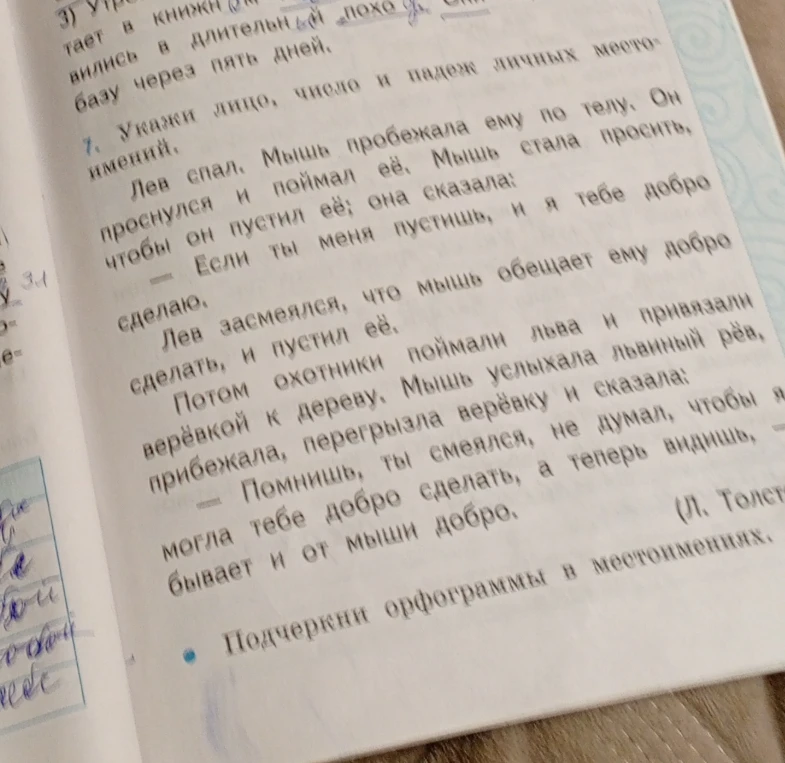 3) Утро
тает в книжн ом
вились в длительн ый похо д.
базу через пять дней.
7. Укажи лицо, число и падеж личных место-
имений.
Лев спал. Мышь пробежала ему по телу. Он
проснулся и поймал её. Мышь стала просить,
чтобы он пустил её; она сказала:
— Если ты меня пустишь, и я тебе добро
сделаю.
Лев засмеялся, что мышь обещает ему добро
сделать, и пустил её.
Потом охотники поймали льва и привязали
верёвкой к дереву. Мышь услыхала львиный рёв,
прибежала, перегрызла верёвку и сказала:
— Помнишь, ты смеялся, не думал, чтобы я
могла тебе добро сделать, а теперь видишь, —
бывает и от мыши добро.
(Л. Толст
• Подчеркни орфограммы в местоимениях.
3л